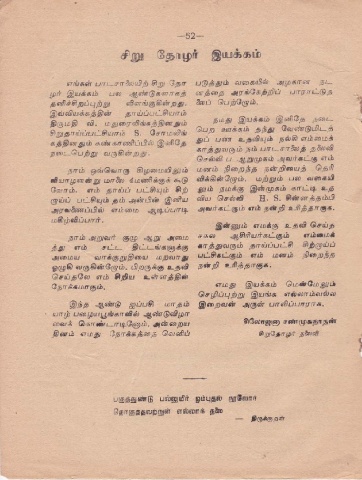 —52—
சிறு தோழர் இயக்கம்
எங்கள் பாடசாலையிற் சிறு தோ
ழர் இயக்கம் பல ஆண்டுகளாகத்
தனிச்சிறப்புற்று விளங்குகின்றது.
இவ்வியக்கத்தின் தாய்ப்பட்சியாம்
திருமதி வி. மதுரைலிங்கத்தினதும்
சிறுதாய்ப்பட்சியாம் S. சோமலிங்
கத்தினதும் கண்காணிப்பில் இனிதே
நடைபெற்று வருகின்றது.
நாம் ஒவ்வொரு கிழமையிலும்
வியாழனன்று மாலை வேளையிற் கூடு
வோம். எம் தாய்ப் பட்சியும் சிற்
றாய்ப் பட்சியும் தம் அன்பின் இனிய
அரவணைப்பில் எம்மை ஆடிப்பாடி
மகிழ்விப்பார்.
நாம் அறுவர் குழு ஆறு அமைத்
து எம் சட்ட திட்டங்களுக்கு
அமைய வாக்குறுதியை மறவாது
ஒழுகி வருகின்றோம். பிறருக்கு உதவி
செய்தலே எம் சிறிய உள்ளத்தின்
நோக்கமாகும்.
இந்த ஆண்டு ஐப்பசி மாதம்
யாழ் பழையபூங்காவில் ஆண்டுவிழா
வைக் கொண்டாடினோம். அன்றைய
தினம் எமது நோக்கத்தை வெளிப்
படுத்தும் வகையில் அழகான நட
னத்தை அரங்கேற்றிப் பாராட்டுத
லைப் பெற்றோம்.
நமது இயக்கம் இனிதே நடை
பெற ஊக்கம் தந்து வேண்டியிடத்
துப் பண உதவியும் நல்கி எம்மைக்
காத்துவரும் நம் பாடசாலைத் தலைவி
செல்வி ப. ஆறுமுகம் அவர்கட்கு எம்
மனம் நிறைந்த நன்றியைத் தெரி
விக்கின்றோம். மற்றும் பல வகையி
லும் நமக்கு இன்முகம் காட்டி உத
விய செல்வி B. S. சின்னத்தம்பி
அவர்கட்கும் எம் நன்றி உரித்தாகுக.
இன்னும் எமக்கு உதவி செய்த
சகல ஆசிரியர்கட்கும் எம்மைக்
காத்துவரும் தாய்ப்பட்சி சிற்றாய்ப்
பட்சிகட்கும் எம் மனம் நிறைந்த
நன்றி உரித்தாகுக.
எமது இயக்கம் மென்மேலும்
செழிப்புற்று இயங்க எல்லாம்வல்ல
இறைவன் அருள் பாலிப்பாராக.
சிலோஜனா சண்முகநாதன்
சிறுதோழர் தலைவி
பகுத்துண்டு பல்லுயிர் ஓம்புதல் நூலோர்
தொகுத்தவற்றுள் எல்லாந் தலை
— திருக்குறள்